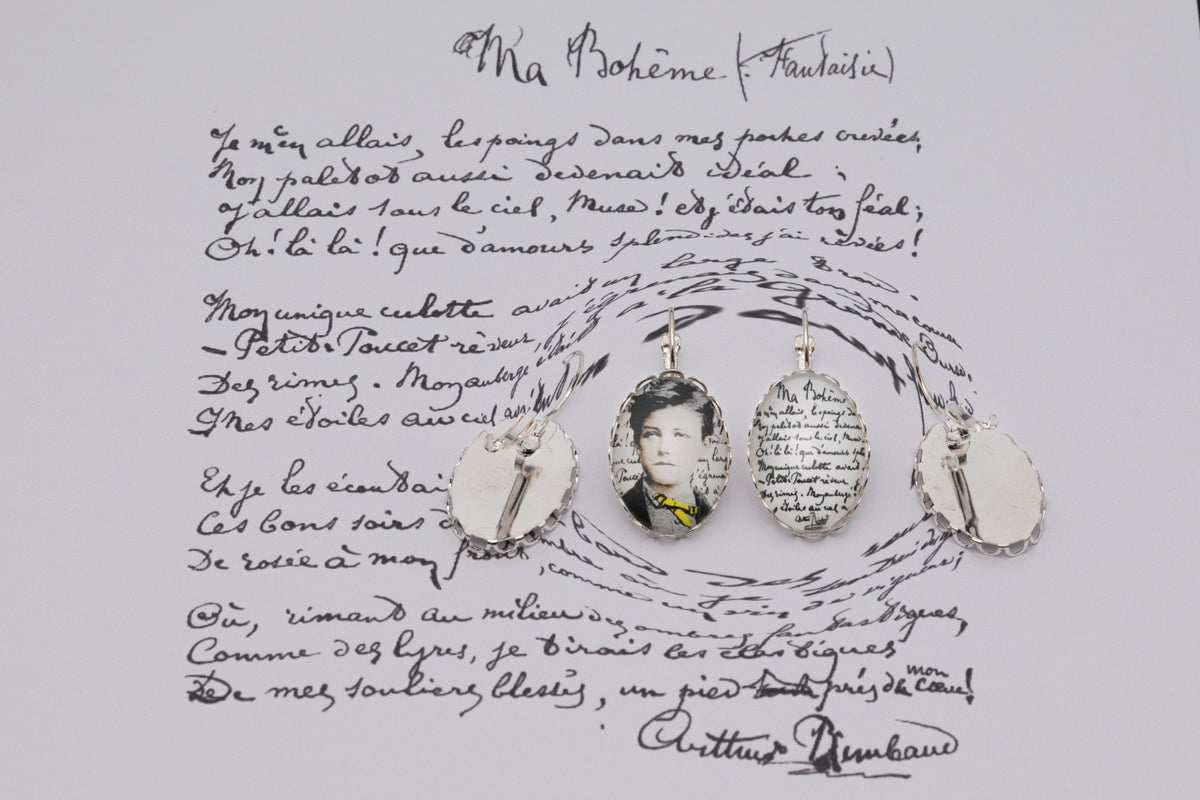 Ma Bohême (. Fantaisie)
Je m'en allais, les poings dans mes poches crevées,
Mon paletot aussi devenait idéal ;
J'allais sous le ciel, Muse ! et j'étais ton féal ;
Oh ! là là ! que d'amours splendides j'ai rêvées !
Mon unique culotte avait un large trou.
- Petit-Poucet rêveur, j'égrenais dans ma course
Des rimes. Mon auberge était à la Grande Ourse,
Mes étoiles au ciel
Et je les écoutai
Ces bons soirs d
De rosée à mon front, comme un vin de vigueur ;
Où, rimant au milieu des ombres fantastiques,
Comme des lyres, je tirais les élastiques
De mes souliers blessés, un pied près de mon coeur !
Arthur Rimbaud
Ma Bohême
m'en allais, les poings da
Mon paletot aussi devena
J'allais sous le ciel, Muse
Oh ! là là ! que d'amours sple
Mon unique culotte avait
- Petit-Poucet rêveur
Des rimes. Mon auberge é
s étoiles au ciel a